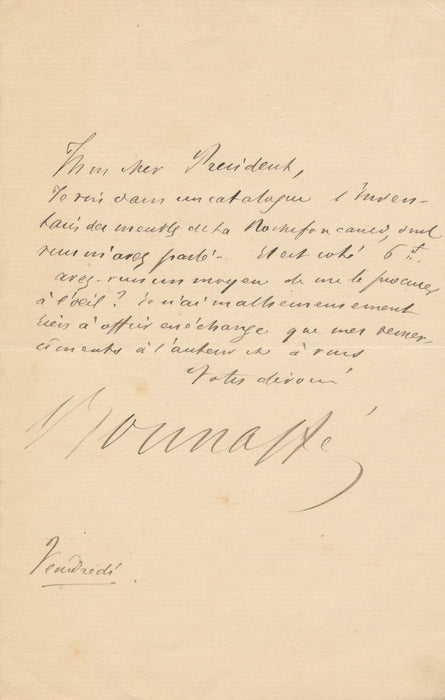 Mon cher Président,
Je vois dans un catalogue l'Inven-
taire des meubles de La Rochefoucauld, dont
vous m'avez parlé. Il est coté 6 f.
avez-vous un moyen de me le procurer
à l'oeil? Je n'ai malheureusement
rien à offrir en échange que mes remer-
ciments à l'auteur et à vous
Votre dévoué
Bonnaffé
Vendredi